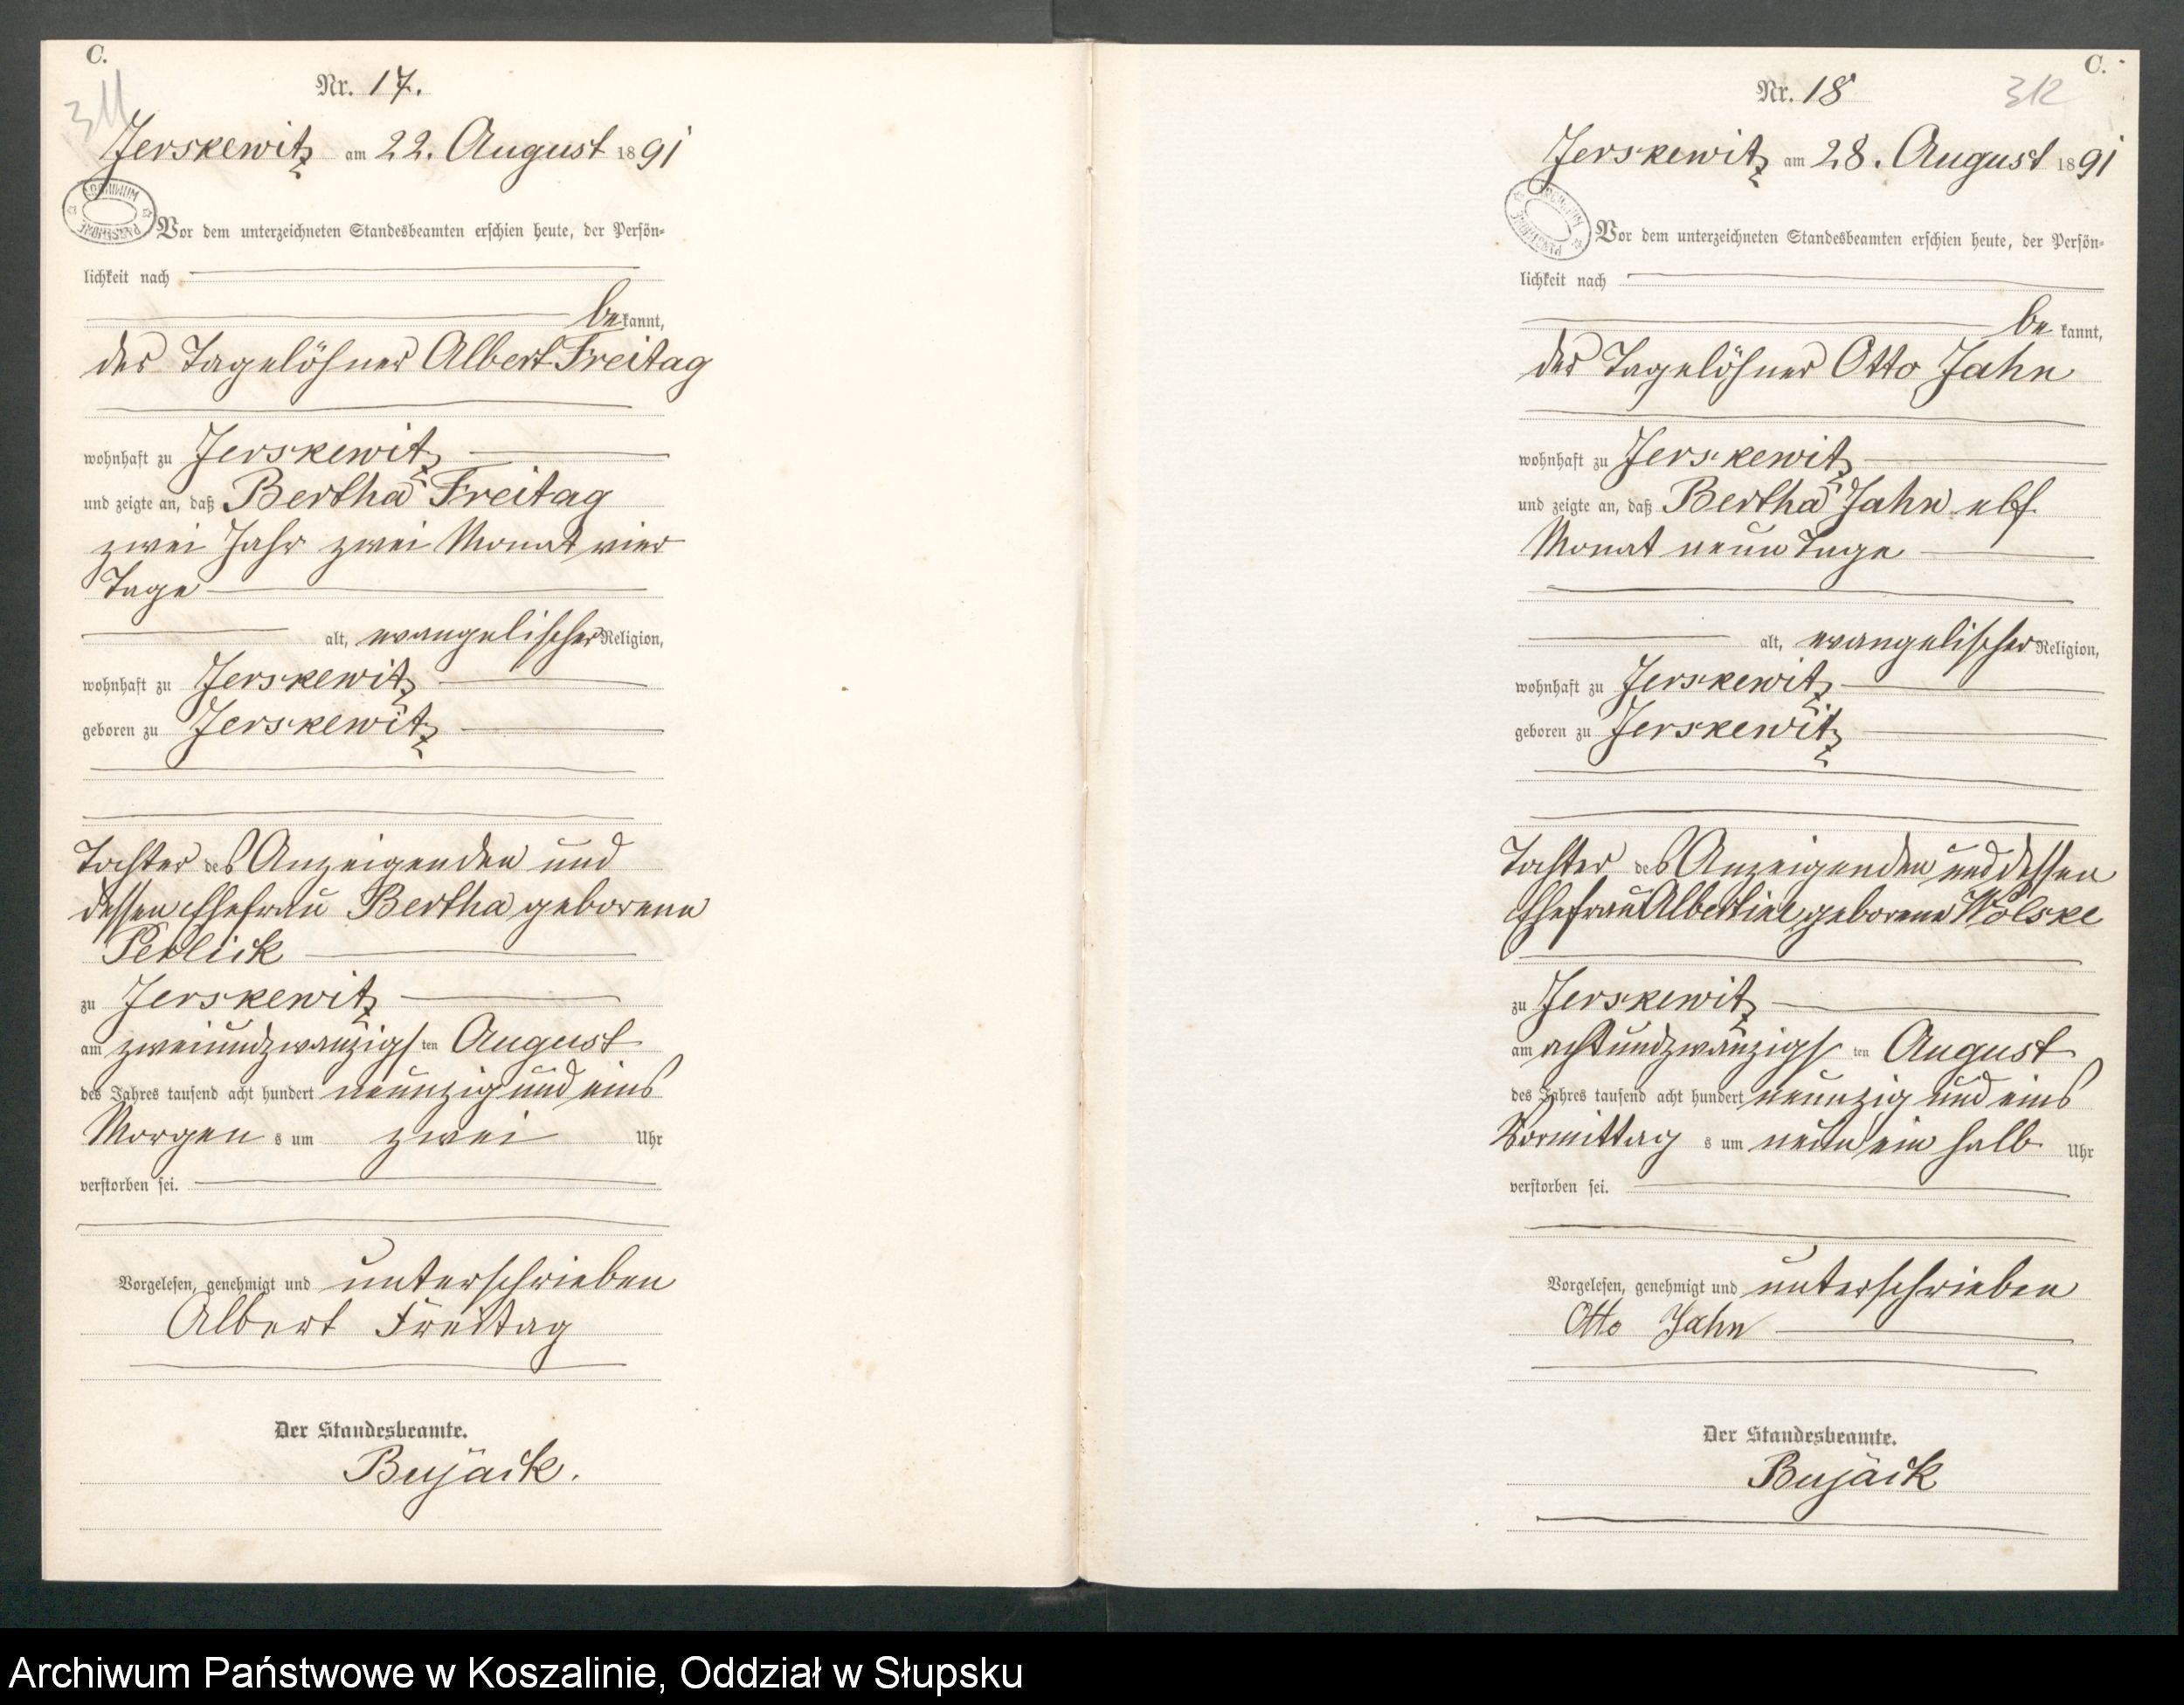 C.
311
Nr. 17.
Jerskewitz am 22. August 1891
ARCHIWUM PAŃSTWOWE
Vor dem unterzeichneten Standesbeamten erschien heute, der Persön-
lichkeit nach
bekannt,
der Tagelöhner Albert Freitag
wohnhaft zu Jerskewitz
und zeigte an, daß Bertha Freitag
zwei Jahr zwei Monat vier
Tage
alt, evangelischer Religion,
wohnhaft zu Jerskewitz
geboren zu Jerskewitz
Tochter des Anzeigenden und
dessen Ehefrau Bertha geborene
zu Jerskewitz
am zweiundzwanzigsten August
des Jahres tausend acht hundert neunzig und eins
Morgens um zwei Uhr
verstorben sei.
Vorgelesen, genehmigt und unterschrieben
Albert Freitag
Der Standesbeamte.
Bujack.
C.
312
Nr. 18
Jerskewitz am 28. August 1891
ARCHIWUM PAŃSTWOWE
Vor dem unterzeichneten Standesbeamten erschien heute, der Persön-
lichkeit nach
bekannt,
der Tagelöhner Otto Jahn
wohnhaft zu Jerskewitz
und zeigte an, daß Bertha Jahn elf
Monat neun Tage
alt, evangelischer Religion,
wohnhaft zu Jerskewitz
geboren zu Jerskewitz
Tochter des Anzeigenden und dessen
Ehefrau Albertine geborene Wolske
zu Jerskewitz
am achtundzwanzigsten August
des Jahres tausend acht hundert neunzig und eins
Vormittags um neun ein halb Uhr
verstorben sei.
Vorgelesen, genehmigt und unterschrieben
Otto Jahn
Der Standesbeamte.
Bujack
Archiwum Państwowe w Koszalinie, Oddział w Słupsku